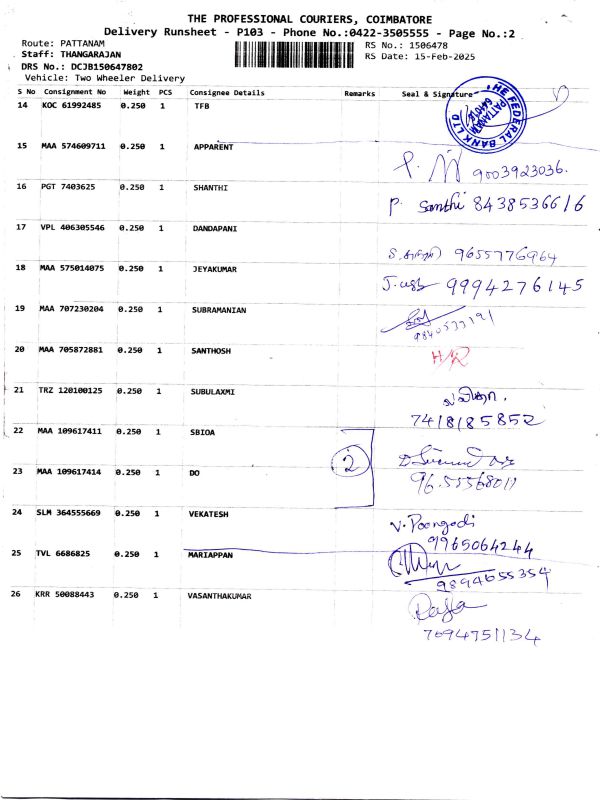 THE PROFESSIONAL COURIERS, COIMBATORE
Delivery Runsheet - P103 - Phone No.:0422-3505555 - Page No.:2
Route: PATTANAM
RS No.: 1506478
Staff: THANGARAJAN
RS Date: 15-Feb-2025
DRS No.: DCJB150647802
Vehicle: Two Wheeler Delivery
S No Consignment No Weight PCS Consignee Details Remarks Seal & Signature
THE FEDERAL BANK LTD
PATTANAM
14 KOC 61992485 0.250 1 TFB
15 MAA 574609711 0.250 1 APPARENT
9003923036.
16 PGT 7403625 0.250 1 SHANTHI
P. Santhi 8438536616
17 VPL 406305546 0.250 1 DANDAPANI
9655776964
18 MAA 575014075 0.250 1 JEYAKUMAR
9994276145
19 MAA 707230204 0.250 1 SUBRAMANIAN
20 MAA 705872881 0.250 1 SANTHOSH
21 TRZ 120100125 0.250 1 SUBULAXMI
7418185852
22 MAA 109617411 0.250 1 SBIOA
2
23 MAA 109617414 0.250 1 DO
24 SLM 364555669 0.250 1 VEKATESH
V. Poongodi
9965064244
25 TVL 6686825 0.250 1 MARIAPPAN
9894655354
26 KRR 50088443 0.250 1 VASANTHAKUMAR
7694751134